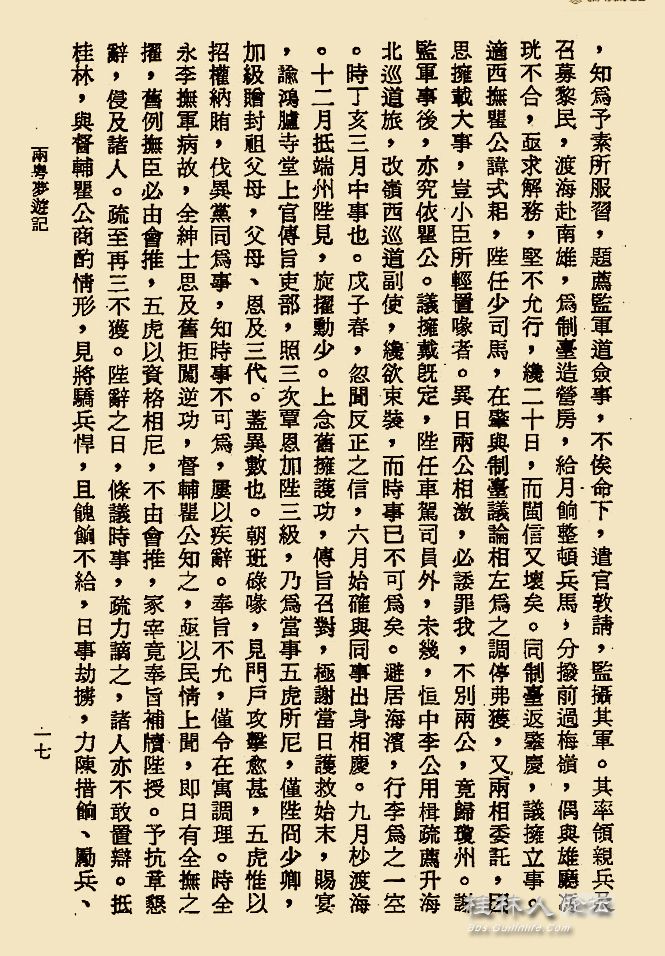 ，知爲予素所服習，題薦監軍道僉事，不俟命下，遣官敦請，監攝其軍。其率領親兵及
召募黎民，渡海赴南雄，爲制臺造營房，給月餉整頓兵馬，分撥前過梅嶺，偶與雄廳凌
珖不合，亟求解務，堅不允行，纔二十日，而閩信又壞矣。同制臺返肇慶，議擁立事。
適西撫瞿公諱式耜，陞任少司馬，在肇與制臺議論相左爲之調停弗獲，又兩相委託，因
思擁載大事，豈小臣所輕置喙者。異日兩公相激，必諉罪我，不別兩公，竟歸瓊州。謝
監軍事後，亦究依瞿公。議擁戴旣定，陞任車駕司員外，未幾，恒中李公用楫疏薦升海
北巡道旅，改嶺西巡道副使，纔欲束裝，而時事已不可爲矣。避居海濱，行李爲之一空
。時丁亥三月中事也。戊子春，忽聞反正之信，六月始確與同事出身相慶。九月杪渡海
。十二月抵端州陛見，旋擢勳少。上念舊擁護功，傳旨召對，極謝當日護救始末，賜宴
，諭鴻臚寺堂上官傳旨吏部，照三次覃恩加陞三級，乃爲當事五虎所尼，僅陞冏少卿，
加級贈封祖父母，父母、恩及三代。蓋異數也。朝班碌喙，見門戶攻擊愈甚，五虎惟以
招權納賄，伐異黨同爲事，知時事不可爲，屢以疾辭。奉旨不允，僅令在寓調理。時全
永李撫軍病故，全紳士思及舊拒闖逆功，督輔瞿公知之，亟以民情上聞，即日有全撫之
擢，舊例撫臣必由會推，五虎以資格相尼，不由會推，冢宰竟奉旨補牘陞授。予抗章懇
辭，侵及諸人。疏至再三不獲。陛辭之日，條議時事，疏力謫之，諸人亦不敢置辯。抵
桂林，與督輔瞿公商酌情形，見將驕兵悍，且餽餉不給，日事劫擄，力陳措餉、勵兵、
兩粤夢遊記
一七
桂林人论坛
Bbs.Guilinlife.com